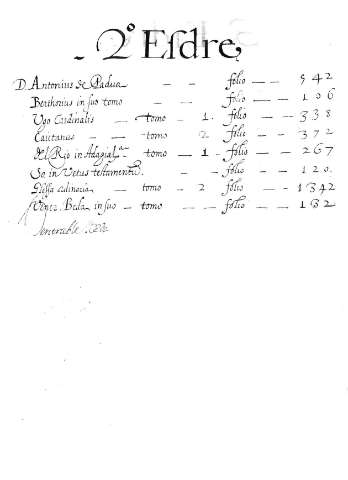 - 2º Esdre,
D. Antonius de Padua — — folio — — 542
Berthorius in suo tomo — — folio — — 106
Vgo Cardinalis — tomo — 1. folio — — 338
Caietanus — — tomo 2 folio — — 372
del Rio in Adagial. tomo — 1. folio — — 267
Sa in Vetus testamentũ. — — folio — — 120.
Glossa — tomo — 2 folio — — 1342
Vener. Beda in suo — tomo — — folio — — 132
Venerable Beda